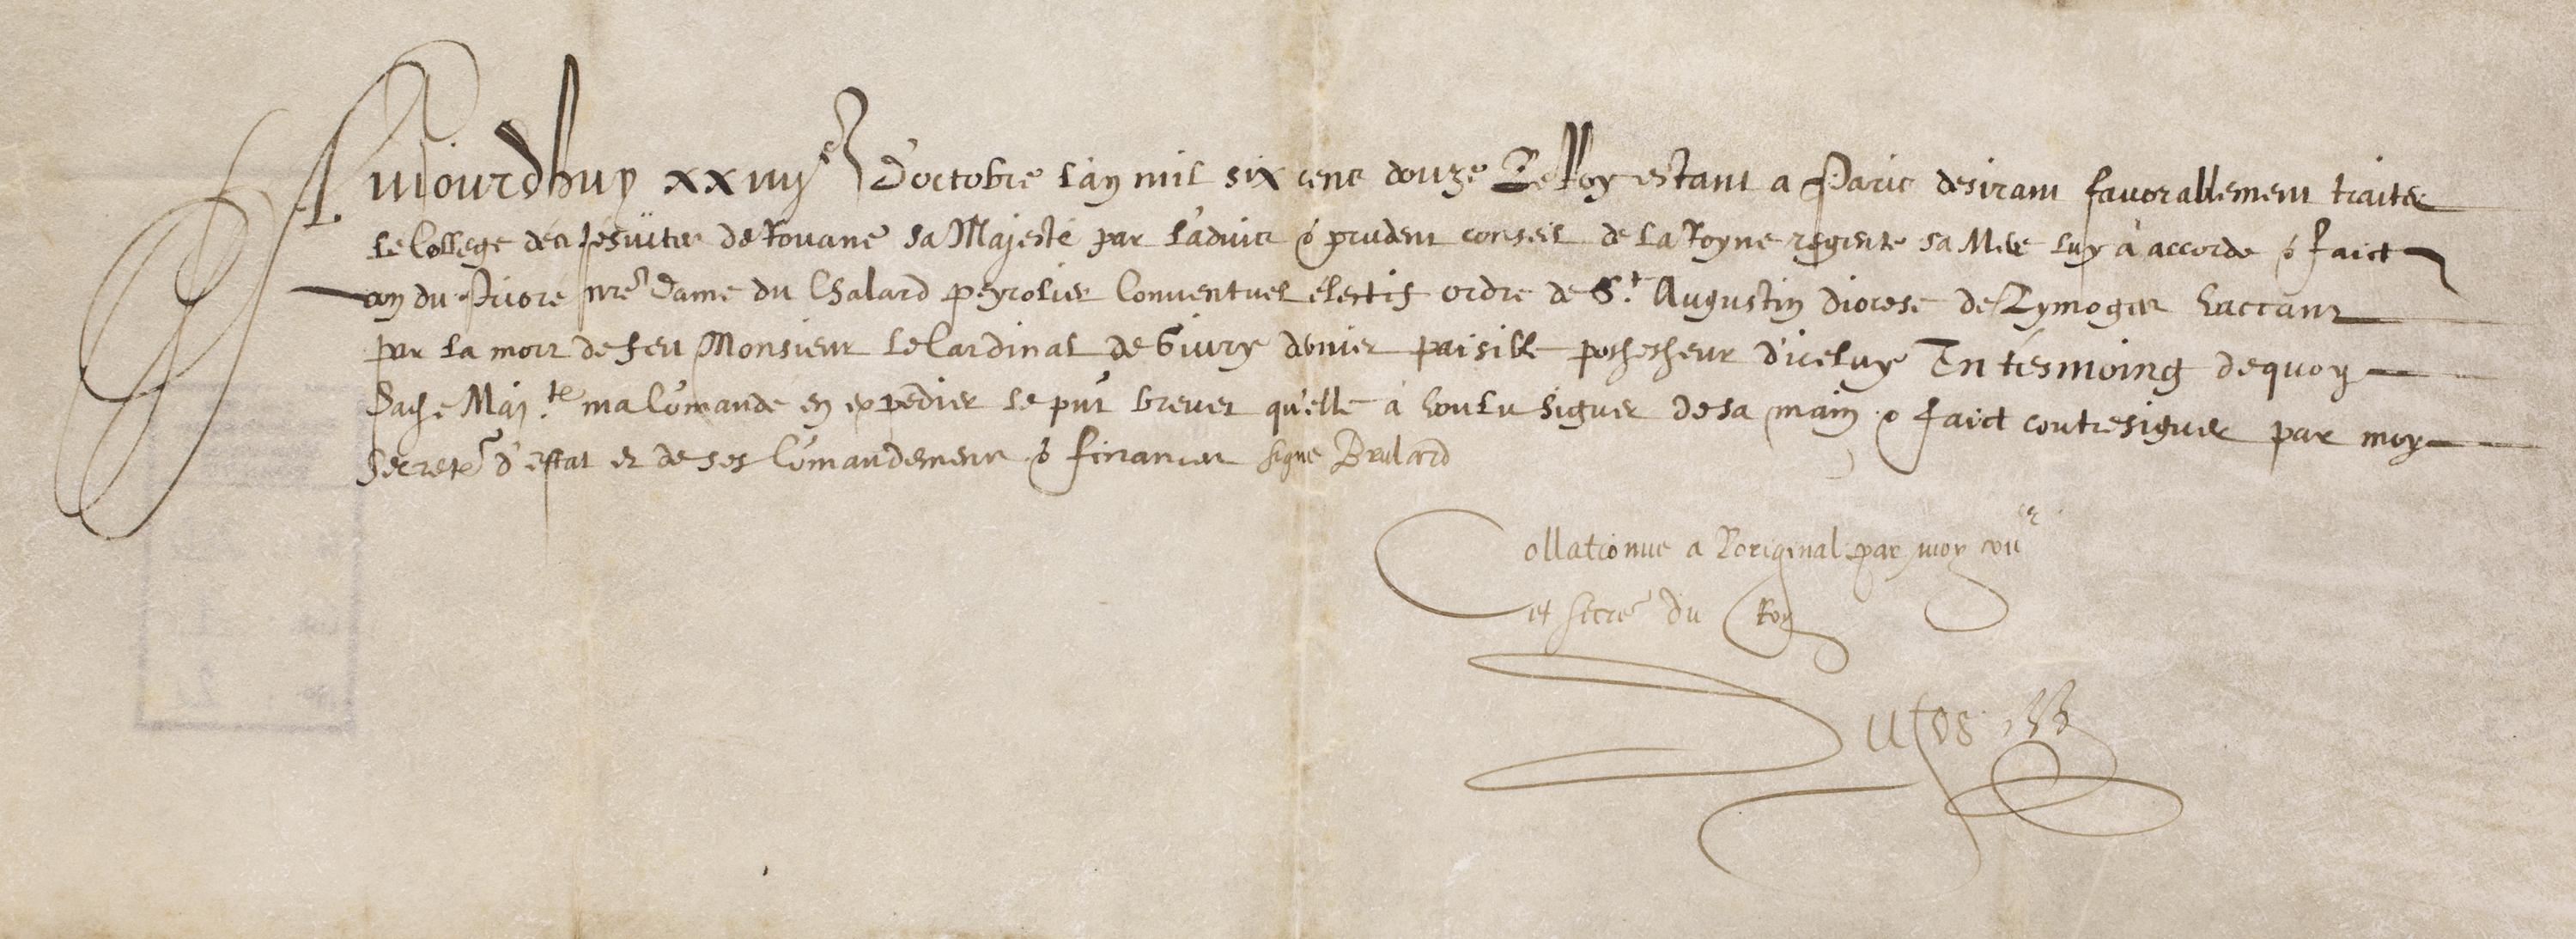 Aujourdhuy xxiiij^e d'octobre l'an mil six cens douze Le Roy estant a Paris desirant favorallement traiter
le College des Jesuites de Rouane sa Majesté par l'advis & prudent conseil de la Royne regente sa Mere luy à accorde & faict
don du Prioré nre Dame du Chalard peyrolier Conventuel electif ordre de S.t Augustin diocese de Lymoges vaccant
par la mort de feu Monsieur le Cardinal de Givry dernier paisible possesseur d'iceluy En tesmoing dequoy
Sad.e Maj.te ma Comandé en expedier le pnt brevet qu'elle à voulu signer de sa main & faict contresigner par moy
Secrete d'estat et de ses Comandemens & finances signe Brulard
Collationne a l'original par moy con^er
et secre du Roy